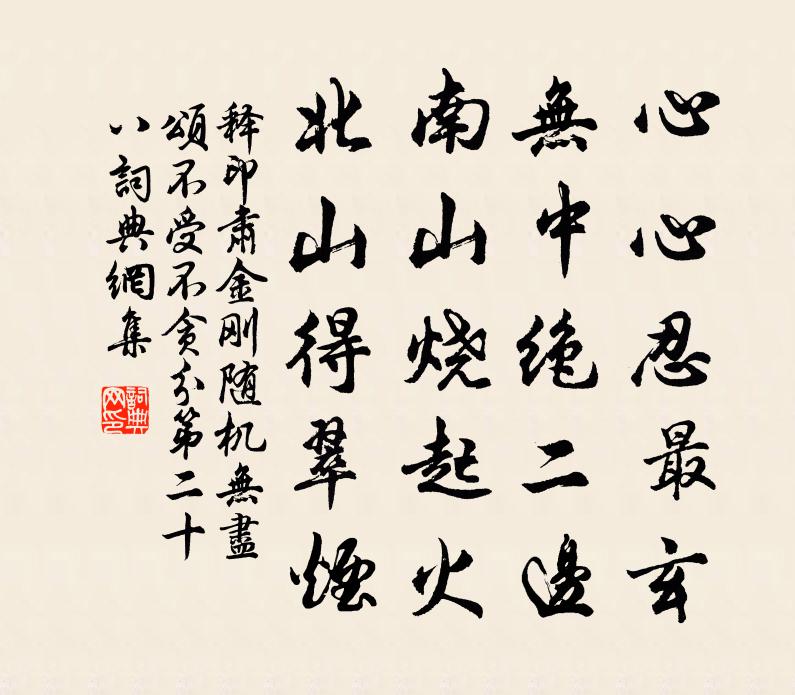 心心忍最玄
無中绝二邊
南山烧起火
北山得翠煙
释印肃金刚随机無盡
頌不受不贪分第二十
八詞典網集
詞典网印